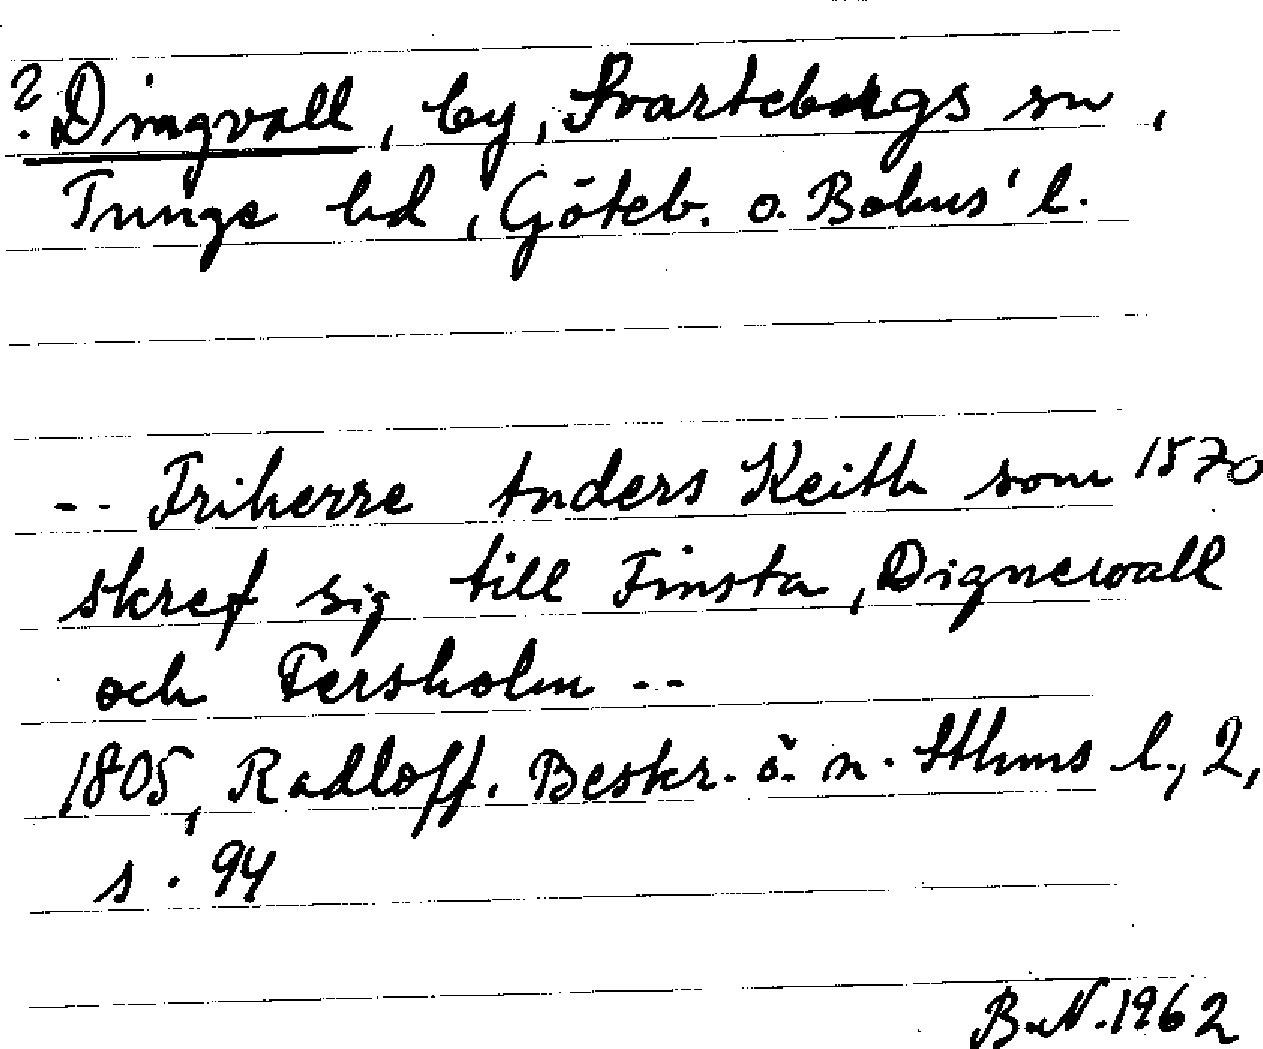 ? Dingvall, by, Svarteborgs sn,
Tunge hd, Göteb. o. Bohus' l.
-- Friherre Anders Keith som 1570
skref sig till Finsta, Dignewall
och Fersholm --
1805, Radloff. Beskr. ö. n. Sthms l., 2,
s. 94
B.N. 1962